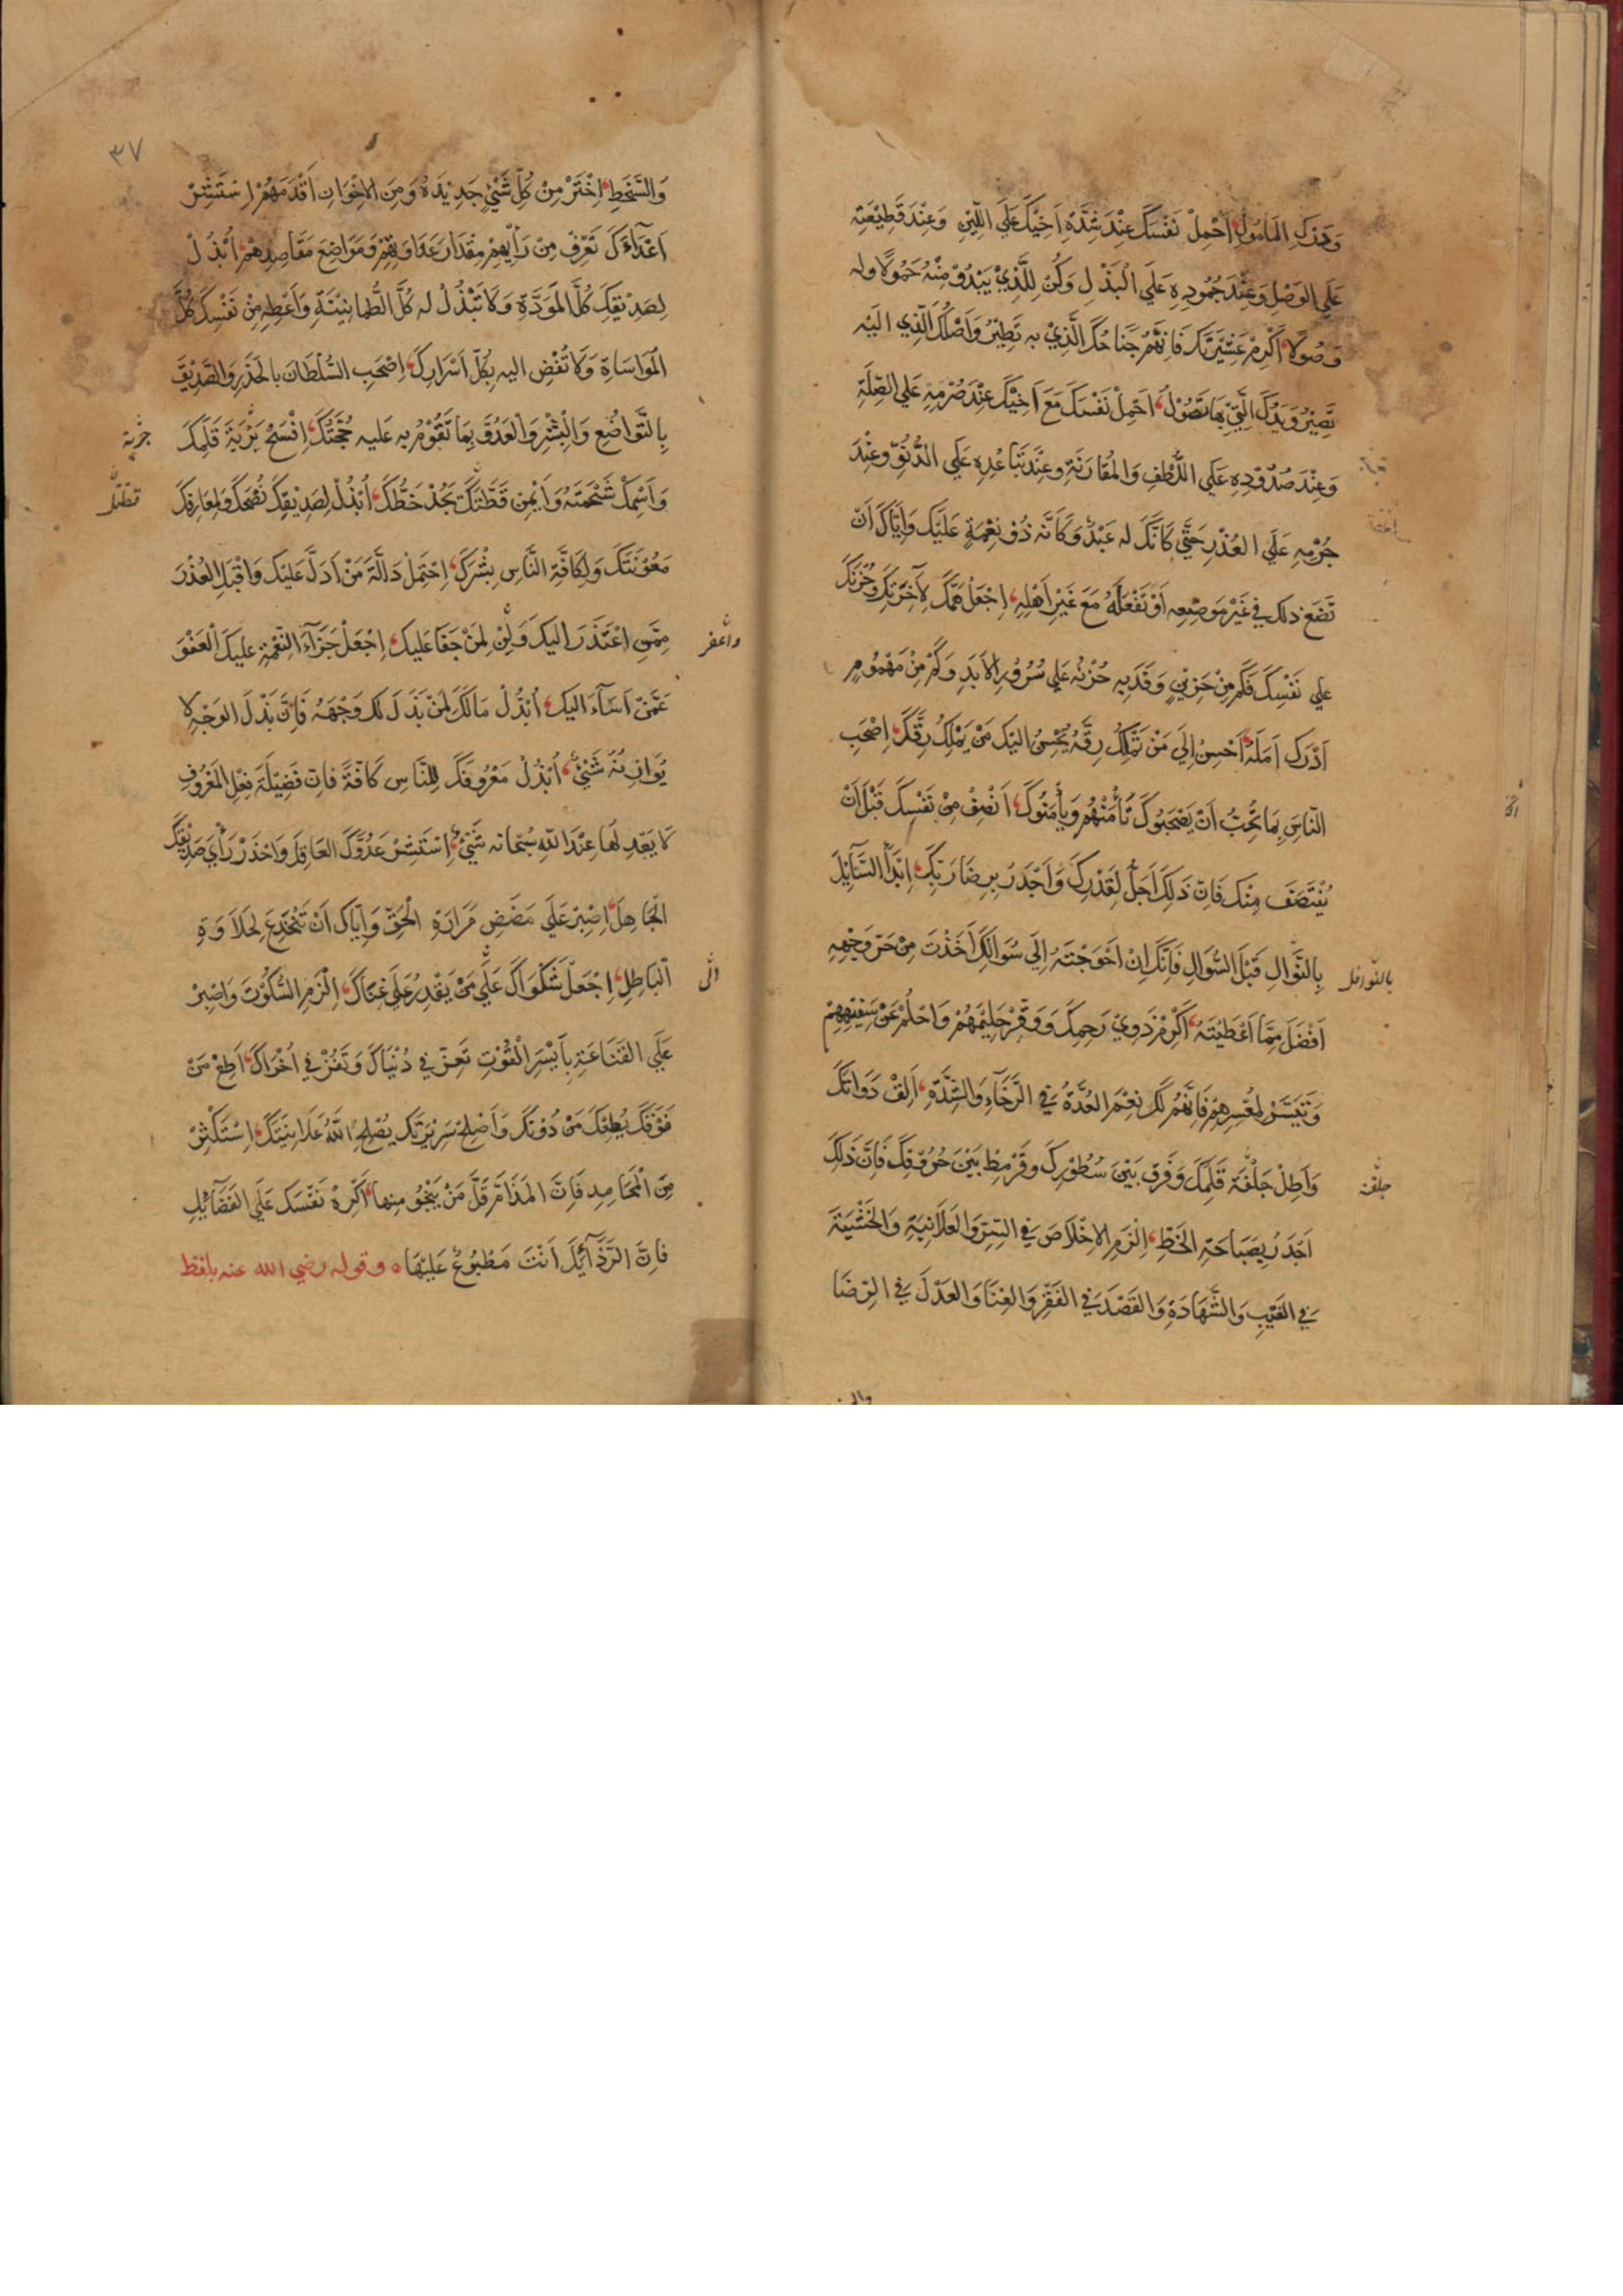 وَبَذلِكَ المَأمُولُ، اَحْمِلْ نَفْسَكَ عِنْدَ شِدَّةِ اَخِيْكَ عَلَي اللِّيْنِ وَعِنْدَ قَطِيْعَتِهِ
عَلَي الوَصْلِ وَعِنْدَ جُمُودِهِ عَلَي الْبَذْلِ وَكُنْ لِلَّذِيْ يَبْدُوْ مِنْهُ حَمُولًا وله
وَصُولًا، اَكْرِمْ عَشِيْرَتَكَ فَاِنَّهُمْ جَنَاحُكَ الَّذِيْ به تَطِيْرُ وَاَصْلُكَ الَّذِي اليْه
تَصِيْرُ وَيَدُكَ الَّتِيْ بِهَا تَصُوْلُ، اَحْمِلْ نَفْسَكَ مَعَ اَخِيْكَ عِنْدَ صُرْمِهِ عَلي الصِّلَةِ
وَعِنْدَ صُدُوْدِهِ عَلَي اللُّطْفِ وَالمُقَارَبَةِ وعِنْدَ تَبَاعُدِهِ عَلَي الدُّنُوِّ وعِنْدَ
جُرْمِهِ عَلَي العُذْرِ حَتَّي كَاَنَّكَ له عَبْدٌ وَكَاَنَّه ذُوْ نِعْمَةٍ عَلَيْكَ وَاِيَّاكَ اَنْ
تَضَعَ ذلك في غَيْرِ مَوضِعِه اَوْ تَفْعَلَهُ مَعَ غَيْرِ اَهْلِهِ، اِجْعَلْ هَمَّكَ لِآخِرَتِكَ وَحُزْنَكَ
علي نَفْسِكَ فَكَمْ مِنْ حَزِيْنٍ وَفَدَ بِه حُزْنُه عَلي سُرُوْرِ الاَبَدِ وَكَمْ مِنْ مَهْمُومٍ
اَدْرَكَ اَمَلَهُ، اَحْسِنْ اِلَي مَنْ تَمْلِكُ رِقَّهُ يُحْسِنُ اليْكَ مَنْ يَمْلِكُ رِقَّكَ، اِصْحَبِ
النَّاسَ بِمَا تُحِبُّ اَنْ يَصْحَبُوكَ تَأْمَنْهُمْ وَيَأْمَنُوكَ، اَنْصِفْ مِنْ نَفْسِكَ قَبْلَ اَنْ
يُنْتَصَفَ مِنْكَ فَاِنّ ذَلِكَ اَجَلُّ لِقَدْرِكَ وَاَجْدَرُ بِرِضَا رَبِّكَ، اِبْدَأ السَّآئِلَ
بالنَّوالِ
بِالنَّوَالِ قَبْلَ السُّوَالِ فَاِنَّكَ اِنْ اَحْوَجْتَهُ اِلَي سُوَالِكَ اَخَذْتَ مِنْ حَرِّ وَجْهِهِ
اَفْضَلَ مِمَّا اَعْطَيْتَهُ، اَكْرِمْ ذَوِيْ رَحِمِكَ وَوَقِّرْ حَلِيْمَهُمْ وَاحْلُمْ عَنْ سَفِيْهِهِمْ
وَتَيَسَّرْ لِمُعْسِرِهِمْ فَاِنَّهُمْ لَكَ نِعْمَ العُدَّةُ فِي الرَّخَآءِ وَالشِّدَّةِ، اَلِقْ دَوَاتَكَ
وَاَطِلْ جَلْفَةَ قَلَمِكَ وَفَرِّقْ بَيْنَ سُطُوْرِكَ وقَرْمِطْ بَيْنَ حُرُوْفِكَ فَاِنَّ ذَلِكَ
جلفة
اَجْدَرُ بِصَبَاحَةِ الخَطِّ، اِلْزَمِ الاِخْلَاصَ فِي السِّرِّ وَالعَلَانِيَةِ وَالخَشْيَةَ
فِي الغَيْبِ وَالشَّهَادَةِ وَالقَصْدَ فِي الفَقْرِ وَالغِنَا وَالعَدْلَ فِي الرِّضَا
٣٧
وَالسَّخَطِ، اِخْتَرْ مِنْ كُلِّ شَيْئٍ جَدِيْدَهُ وَمِنَ الاِخْوَانِ اَقْدَمَهُمْ، اِسْتَشِرْ
اَعْدَآءَكَ تَعْرِفْ مِنْ رَأيِهِمْ مِقْدَارَ عَدَاوَتِهِمْ وَمَوَاضِعَ مَقَاصِدِهِمْ، اُبْذُلْ
لِصَدِيْقِكَ كُلَّ المَوَدَّةِ وَلَا تَبْذُلْ له كُلَّ الطُّمَانِيْنَةِ وَاَعْطِهِ مِنْ نَفْسِكَ كُلَّ
المُوَاسَاةِ وَلَا تُفْضِ اليه بِكُلِّ اَسْرَارِكَ، اِصْحَبِ السُّلْطَانَ بالحَذَرِ وَالصَّدِيْقَ
بِالتَّوَاضُعِ وَالْبِشْرِ وَالعَدُوَّ بِمَا تَقُوْمُ به عَلَيه حُجَّتُكَ، اِفْسَحْ بَرْيَةَ قَلَمِكَ
وَاَسْمِكْ شَحْمَتَهُ وَاَيْمِنْ قَطَّتَكَ يَجُدْ خَطُّكَ، اُبْذُلْ لِصَدِيْقِكَ نُصْحَكَ وَلِمَعَارِفِكَ
مَعُوْنَتَكَ وَلِكَافَّةِ النَّاسِ بِشْرَكَ، اِحْتَمِلْ دَالَّةَ مَنْ اَدَلَّ عَلَيْكَ وَاقْبَلِ العُذْرَ
مِمَّنِ اعْتَذَرَ اليكَ وَلِنْ لِمَنْ جَفَا عَلَيكَ، اِجْعَلْ جَزَآءَ النِّعْمَةِ عليكَ العَفْوَ
واغفر
عَمَّنْ اَسَآءَ اليكَ، اُبْذُلْ مَالَكَ لِمَنْ بَذَلَ لك وَجْهَهُ فَاِنَّ بَذْلَ الوَجْهِ لا
يُوَازِنُهُ شَيْئٌ، اُبْذُلْ مَعْرُوْفَكَ لِلنَّاسِ كَافَّةً فاِنّ فَضِيْلَةَ فِعْلِ المَعْرُوْفِ
لَا يَعْدِلُهَا عِنْدَ اللهِ سُبْحَانَه شَيْئٌ، اِسْتَشِرْ عَدُوَّكَ العَاقِلَ وَاحْذَرْ رَأْيَ صَدِيْقِكَ
الجَاهِلِ، اِصْبِرْ عَلَي مَضَضِ مَرَارَةِ الْحَقِّ وَاِيَّاكَ اَنْ تَنْخَدِعَ لِحَلَاوَةِ
الْبَاطِلِ، اِجْعَلْ شَكْوَاكَ عَلَي مَنْ يَقْدِرُ عَلَي غِنَاكَ، اِلْزَمِ السُّكُوْتَ وَاصْبِرْ
الي
عَلَي القَنَاعَةِ بِاَيْسَرِ الْقُوْتِ تَعِزَّ في دُنْيَاكَ وَتَفُزْ في اُخْرَاكَ، اَطِعْ مَنْ
فَوْقَكَ يُطِعْكَ مَنْ دُوْنَكَ وَاَصْلِحْ سَرِيْرَتَكَ يُصْلِحِ اللّٰهُ عَلَانِيَتَكَ، اِسْتَكْثِرْ
مِنَ الْمَحَامِدِ فَاِنَّ المَذَامَّ قَلَّ مَنْ يَنْجُوْ مِنها، اَكْرِهْ نَفْسَكَ عَلَي الفَضَآئِلِ
فَاِنَّ الرَّذَآئِلَ اَنْتَ مَطْبُوْعٌ عَلَيْهَا ۰ وقوله رضي الله عنه بلفظ